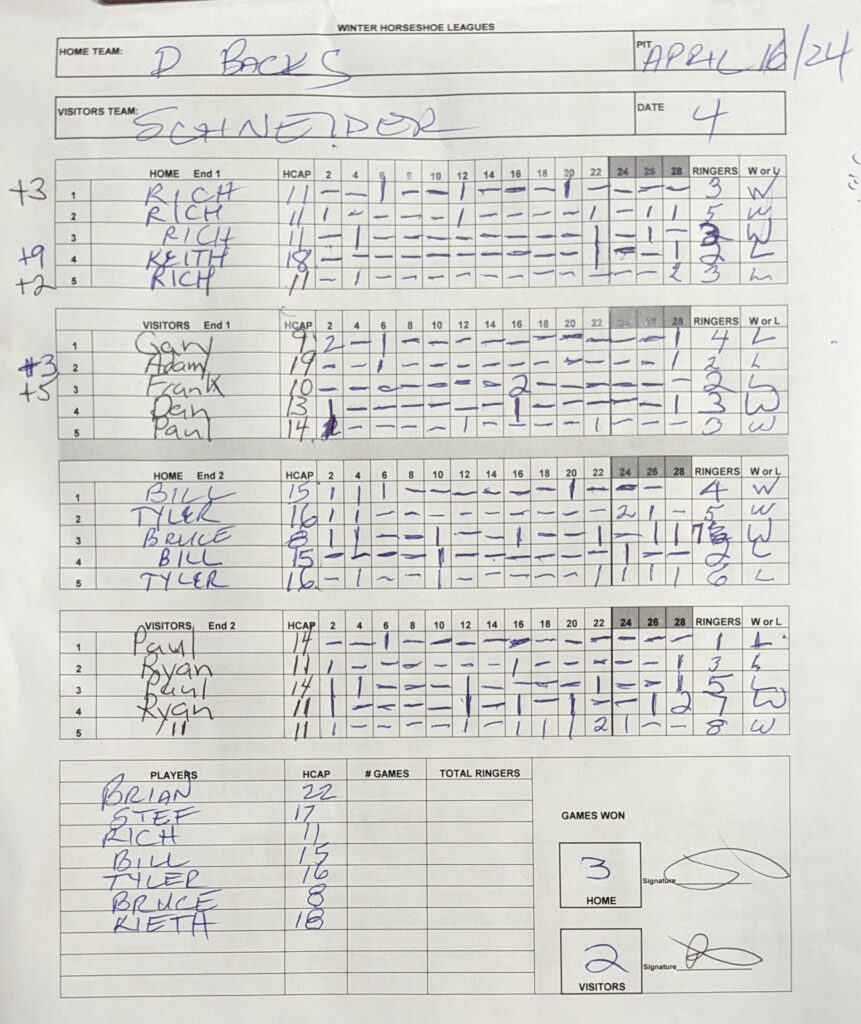 WINTER HORSESHOE LEAGUES
HOME TEAM: D BACKS PIT APRIL 16/24
VISITORS TEAM: SCHNEIDER DATE 4
HOME End 1 HCAP 2 4 6 8 10 12 14 16 18 20 22 24 26 28 RINGERS W or L
+3 1 RICH 11 - - 1 - - 1 - - - 1 - - - - 3 W
2 RICH 11 1 - - - - 1 - - - - 1 - 1 1 5 W
3 RICH 11 - 1 - - - - - - - - 1 - 1 - W
+9 4 KEITH 18 - - - - - - - - - - 1 - - 1 2 L
+2 5 RICH 11 - 1 - - - - - - - - - - - 2 3 L
VISITORS End 1 HCAP 2 4 6 8 10 12 14 16 18 20 22 24 26 28 RINGERS W or L
1 Gary 9 2 - 1 - - - - - - - - - - 1 4 L
+3 2 Adam 19 - - 1 - - - - - - - - - - 1 2 L
+5 3 Frank 10 - - - - - - - 2 - - - - - - 2 L
4 Dan 13 1 - - - - - - 1 - - - - - 1 3 W
5 Paul 14 - - - - 1 - - - - 1 - - - 3 W
HOME End 2 HCAP 2 4 6 8 10 12 14 16 18 20 22 24 26 28 RINGERS W or L
1 BILL 15 1 1 1 - - - - - - 1 - - - 4 W
2 TYLER 16 1 1 - - - - - - - - - 2 1 - 5 W
3 BRUCE 8 1 1 - - 1 - - 1 - - 1 - 1 1 7 W
4 BILL 15 - - - - 1 - - - - - - 1 - - 2 L
5 TYLER 16 - 1 - - 1 - - - - - 1 1 1 1 6 L
VISITORS End 2 HCAP 2 4 6 8 10 12 14 16 18 20 22 24 26 28 RINGERS W or L
1 Paul 14 - - 1 - - - - - - - - - - - 1 L
2 Ryan 11 1 - - - - - - 1 - - - - - 1 3 L
3 Paul 14 1 1 - - - 1 - - - - 1 - - 1 5 L
4 Ryan 11 1 1 - - - 1 - 1 - - - - 1 2 7 W
5 11 11 1 - - - - 1 - 1 1 1 2 1 - - 8 W
PLAYERS HCAP # GAMES TOTAL RINGERS
BRIAN 22
STEF 17
RICH 11
BILL 15
TYLER 16
BRUCE 8
KIETH 18
GAMES WON
3 Signature
HOME
2 Signature
VISITORS